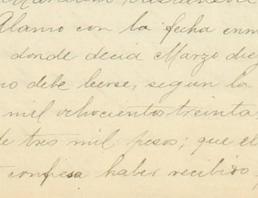 Alamo con la fecha enm
donde decia Marzo die
no debe leerse, segun la
mil ochocientos treinta
de tres mil pesos; que el
confiesa haber recibido,